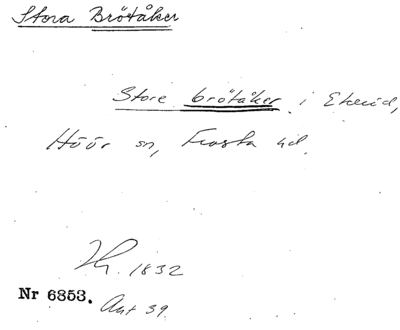 Stora Brötåker
Store brötåker i Ekeröd,
Höör sn, Frosta hd.
1832
Nr 6353.
Akt 39